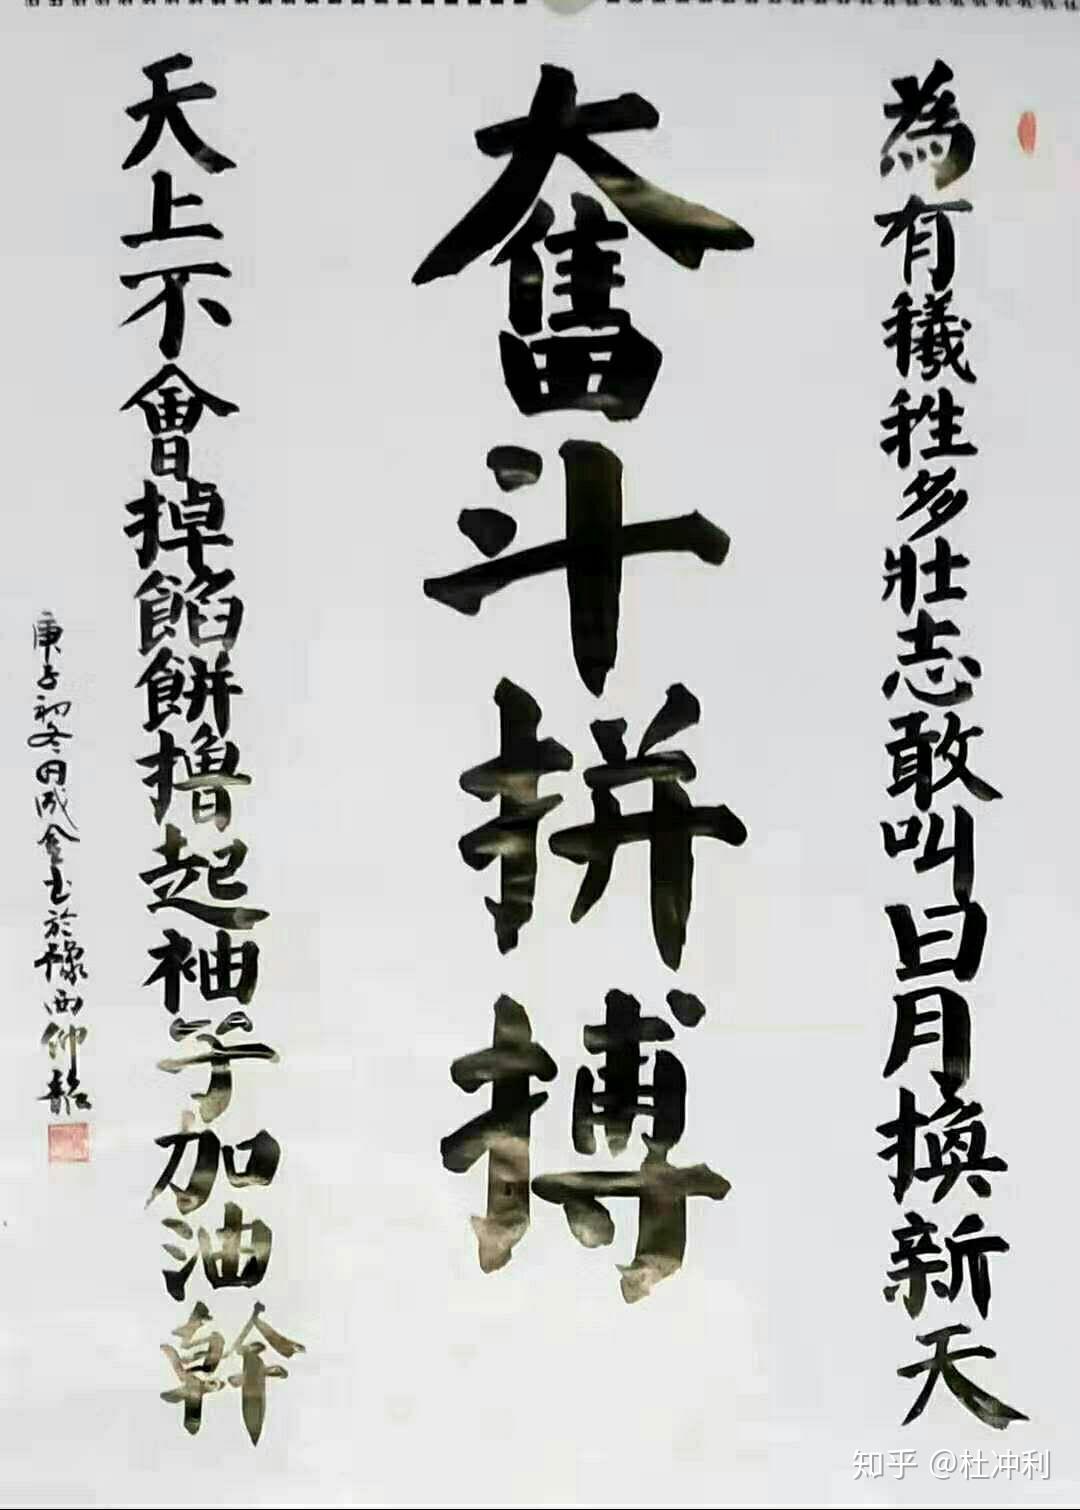 為有犧牲多壯志敢叫日月換新天
奮斗拼搏
天上不會掉餡餅擼起袖子加油幹
庚子初冬月成金书於豫西仰韶
知乎 @杜冲利